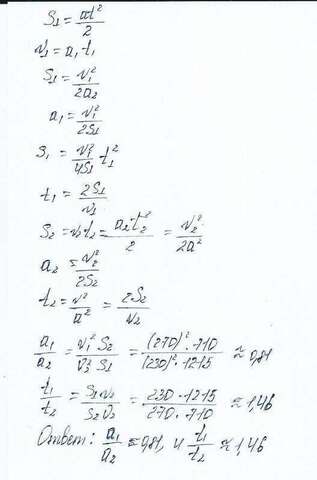 S₁ = at²/2
v₁ = a₁ t₁
S₁ = v₁²/2a₂
a₁ = v₁²/2S₁
S₁ = v₁²/4S₁ t₁²
t₁ = 2S₁/v₁
S₂ = v₂t₂ = a₂t₂²/2 = v₂²/2a²
a₂ = v₂²/2S₂
t₂ = v²/a² = 2S₂/v₂
a₁/a₂ = v₁² S₂/v₂² S₁ = (270)² · 710/(230)² · 1215 ≈ 0,81
t₁/t₂ = S₁v₂/S₂v₂ = 230 · 1215/270 · 710 ≈ 1,46
Ответ: a₁/a₂ ≈ 0,81, и t₁/t₂ ≈ 1,46